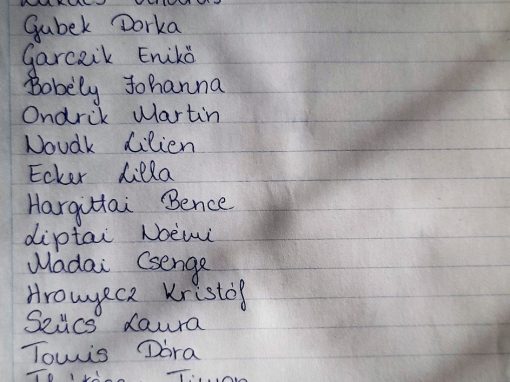 Gubek Dorka
Garczik Enikő
Bobély Johanna
Ondrik Martin
Novák Lilien
Ecker Lilla
Hargittai Bence
Liptai Noémi
Madai Csenge
Kristóf
Szűcs Laura
Dóra